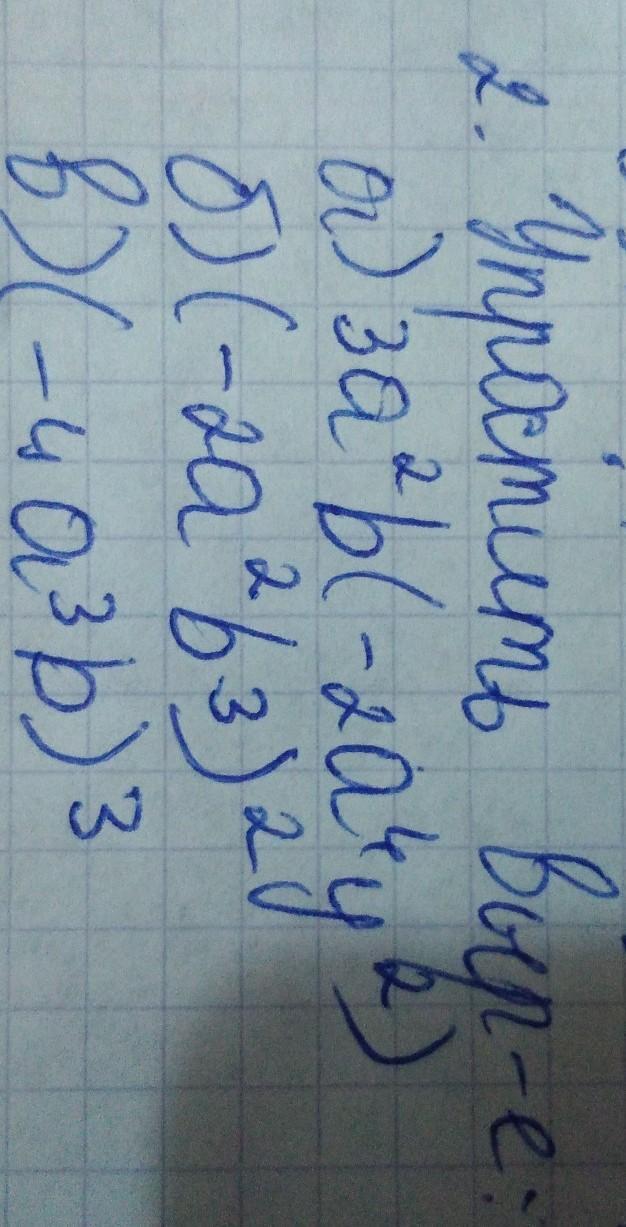 2. Упростить выр-е:
а) 3a²b(-2a⁴y²)
б) (-2a²b³)²y
в) (-4a³b)³